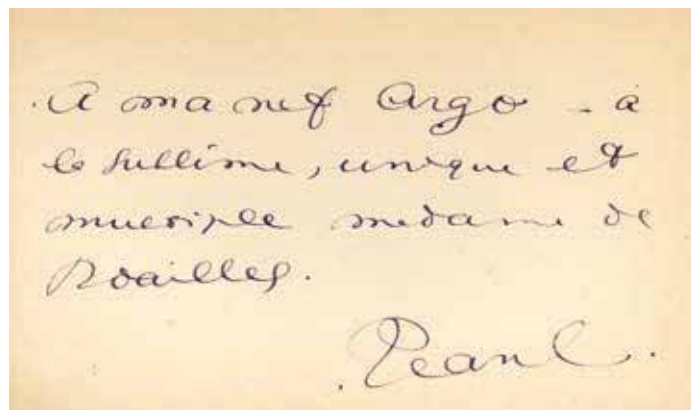 A ma nef Argo - à
la sublime, unique et
multiple madame de
Noailles.
Jean C.